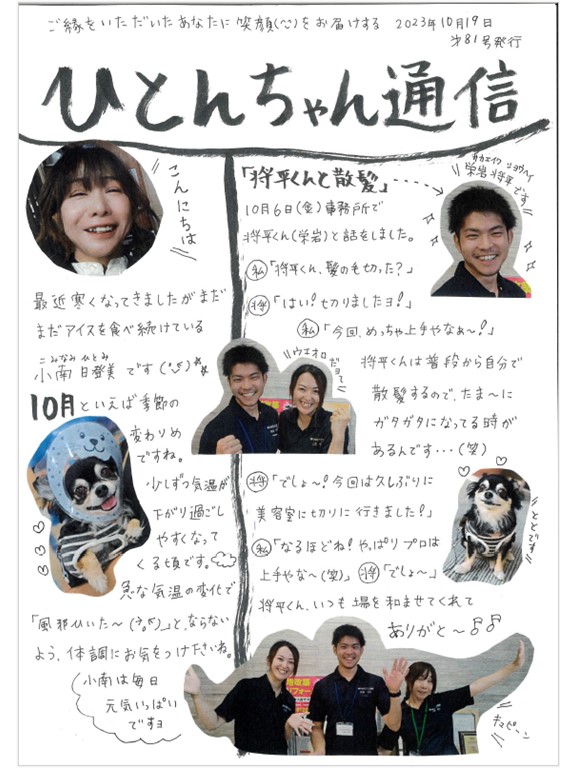 ご縁をいただいたあなたに笑顔(^^)をお届けする 2023年10月19日
第81号発行
ひとんちゃん通信
こんにちは
最近寒くなってきましたがまだ
まだアイスを食べ続けている
こみなみ ひとみ
小南日登美です
10月といえば季節の
変わりめ
ですね。
少しずつ気温が
下がり過ごし
やすくなって
くる頃です。
急な気温の変化で
「風邪ひいた〜」と、ならない
よう、体調にお気をつけ下さいね。
小南は毎日
元気いっぱい
ですョ
「将平くんと散髪」
サカエイワ ショウヘイ
栄岩将平です
10月6日(金)事務所で
将平くん(栄岩)と話をしました。
私「将平くん、髪の毛切った?」
将「はい!切りましたョ!」
私「今回、めっちゃ上手やなぁ〜!」
ウエオロだョ
将平くんは普段から自分で
散髪するので、たま〜に
ガタガタになってる時が
あるんです・・・(笑)
将「でしょ〜!今回は久しぶりに
美容室に切りに行きました!」
ととです
私「なるほどね!やっぱりプロは
上手やな〜(笑)」将「でしょ〜」
将平くん、いつも場を和ませてくれて
ありがと〜♪♪
キュピーン